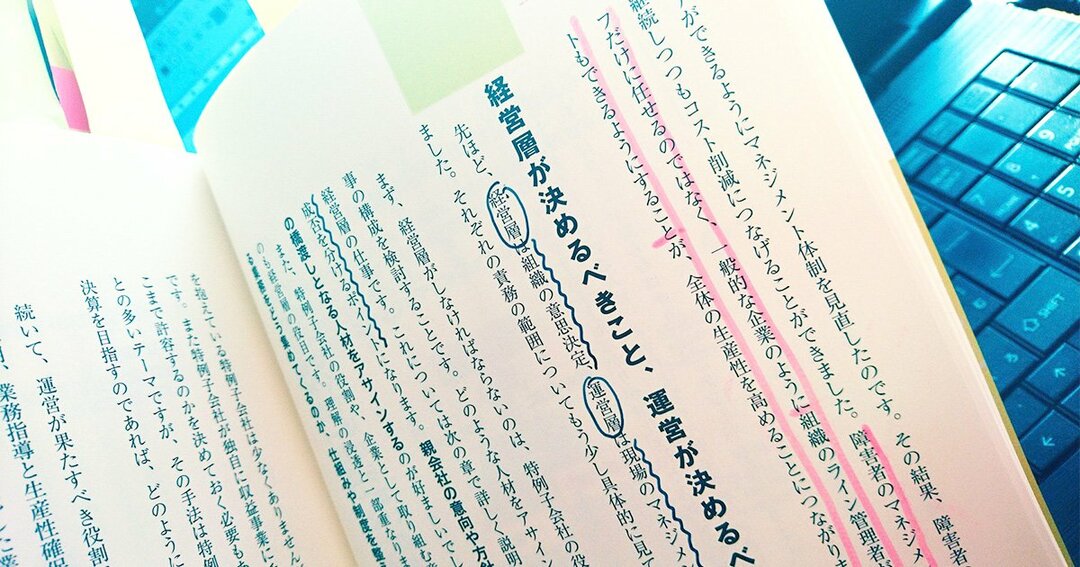 ができるようにマネジメント体制を見直したのです。その結果、障害者
継続しつつもコスト削減につなげることができました。障害者のマネジメ
フだけに任せるのではなく、一般的な企業のように組織のライン管理者が
トもできるようにすることが、全体の生産性を高めることにつながりま
経営層が決めるべきこと、運営が決めるべ
先ほど、経営層は組織の意思決定、運営層は現場のマネジメ
ました。それぞれの責務の範囲についてもう少し具体的に見て
まず、経営層がしなければならないのは、特例子会社の役
事の構成を検討することです。どのような人材をアサイン
経営層の仕事です。これについては次の章で詳しく説明
成否を分けるポイントになります。親会社の意向や方針
の橋渡しとなる人材をアサインするのが好ましいで
また、特例子会社の役割や、企業として取り組む
のも経営層の役目です。理解の浸透と一部重なりま
を抱えている特例子会社は少なくありません
です。また特例子会社が独自に収益事業に
こまで許容するのかを決めておく必要も
との多いテーマですが、その手法は特例
決算を目指すのであれば、どのように
続いて、運営が果たすべき役割
業務指導と生産性確保
SHIFT